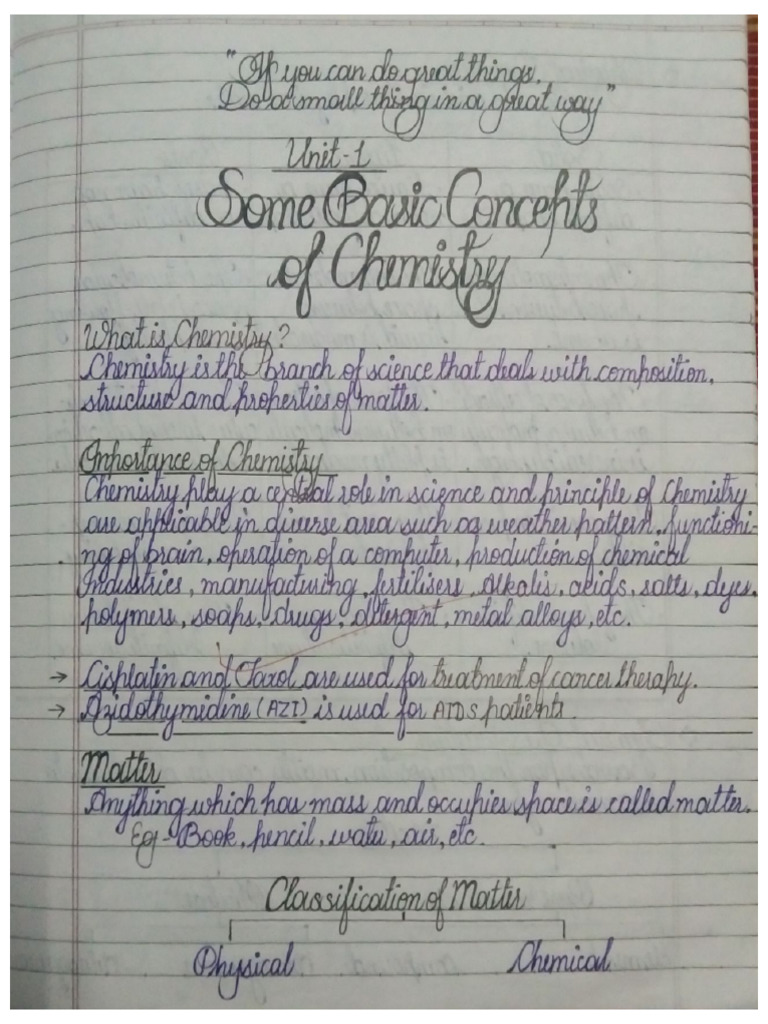 "If you can do great things.
Do a small thing in a great way"
Unit-1
Some Basic Concepts
of Chemistry
What is Chemistry?
Chemistry is the branch of science that deals with composition,
structure and properties of matter.
Importance of Chemistry
Chemistry play a central role in science and principle of Chemistry
are applicable in diverse area such as weather pattern, functioni-
ng of brain, operation of a computer, production of chemical
Industries, manufacturing, fertilisers, Alkalis, acids, salts, dyes,
polymers, soaps, drugs, detergent, metal alloys, etc.
→ Cisplatin and Taxol are used for treatment of cancer therapy.
→ Azidothymidine (AZT) is used for AIDS patients.
Matter
Anything which has mass and occupies space is called matter.
Eg - Book, pencil, water, air, etc.
Classification of Matter
Physical Chemical